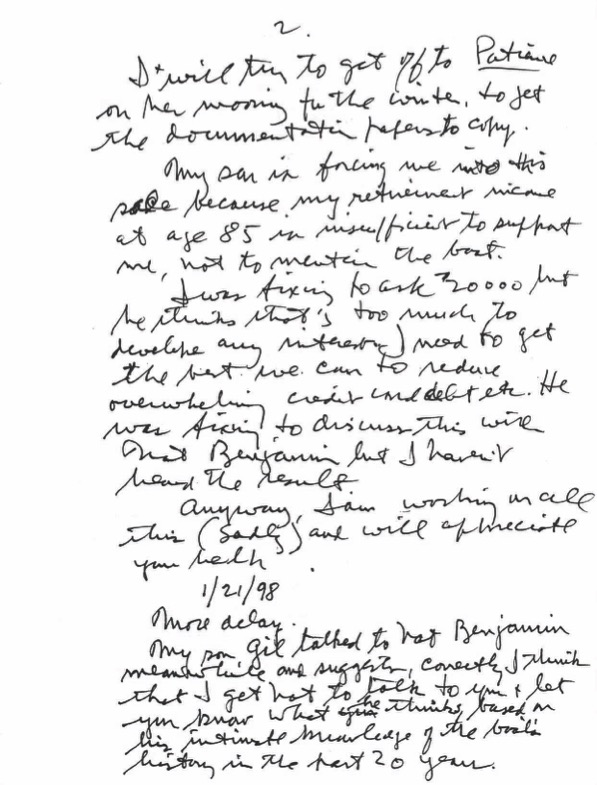 2.
I will try to get off to Patience
on her mooring for the winter, to get
the documentation papers to copy.
My son is forcing me into this
sale because my retirement income
at age 85 is insufficient to support
me, not to mention the boat.
I was fixing to ask $20000 but
he thinks that's too much to
develope any interest. I need to get
the best we can to reduce
overwhelming credit card debt etc. He
was fixing to discuss this with
Nat Benjamin but I haven't
heard the results
Anyway, I am working on all
this (sadly) and will appreciate
your help.
1/21/98
More delay.
My son Gil talked to Nat Benjamin
meanwhile and suggests, correctly I think
that I get Nat to talk to you + let
you know what he thinks, based on
his intimate knowledge of the boat's
history in the past 20 years.